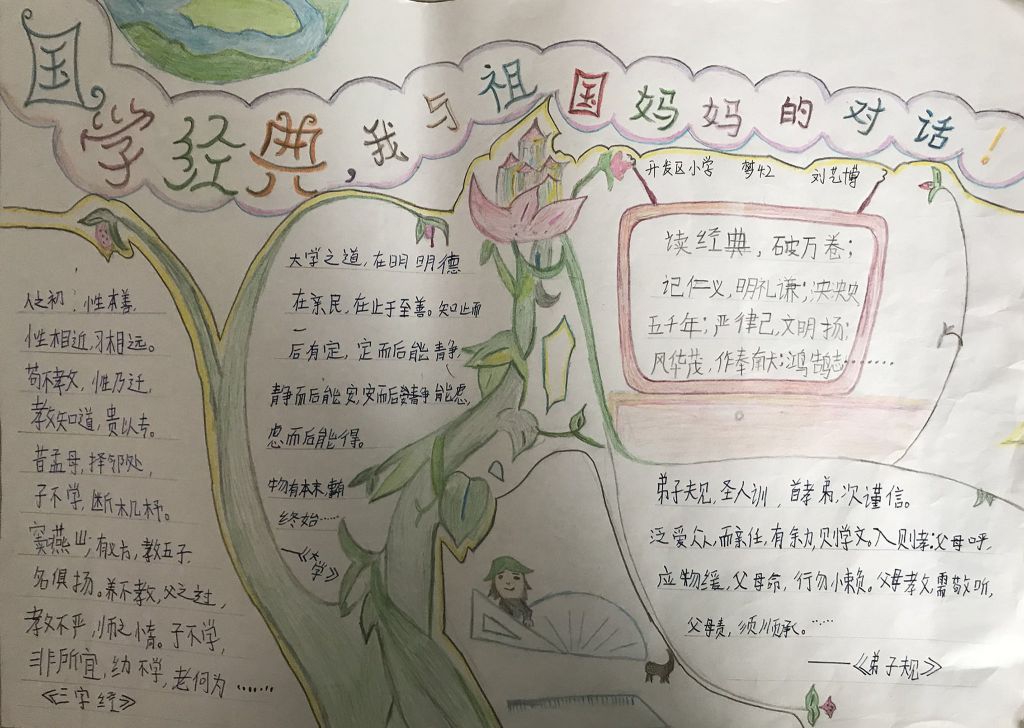 国学经典，我与祖国妈妈的对话！
开发区小学 梦42 刘艺博
人之初，性本善，
性相近，习相远。
苟不教，性乃迁，
教知道，贵以专。
昔孟母，择邻处，
子不学，断机杼。
窦燕山，有义方，教五子，
名俱扬。养不教，父之过，
教不严，师之惰。子不学，
非所宜，幼不学，老何为……
《三字经》
大学之道，在明明德
在亲民，在止于至善。知止而
后有定，定而后能静，
静而后能安，安而后能虑，
虑而后能得。
物有本末，事有
终始……
《大学》
读经典，破万卷；
记仁义，明礼谦；泱泱
五千年；严律己，文明扬；
风华茂，作奉献；鸿鹄志………
弟子规，圣人训，首孝弟，次谨信。
泛爱众，而亲仁，有余力，则学文。入则孝：父母呼，
应勿缓，父母命，行勿懒。父母教，需敬听，
父母责，须顺承。……
——《弟子规》